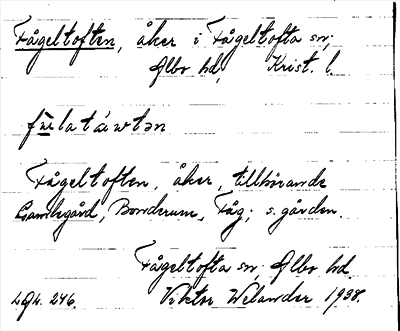 Fågeltoften, åker i Fågeltofta sn,
Albo hd, Krist. l.
Fågeltoften, åker, tillhörande
Gamlegård, Bonderum, Fåg; s. gården.
Fågeltofta sn, Albo hd.
Viktor Welander 1938.